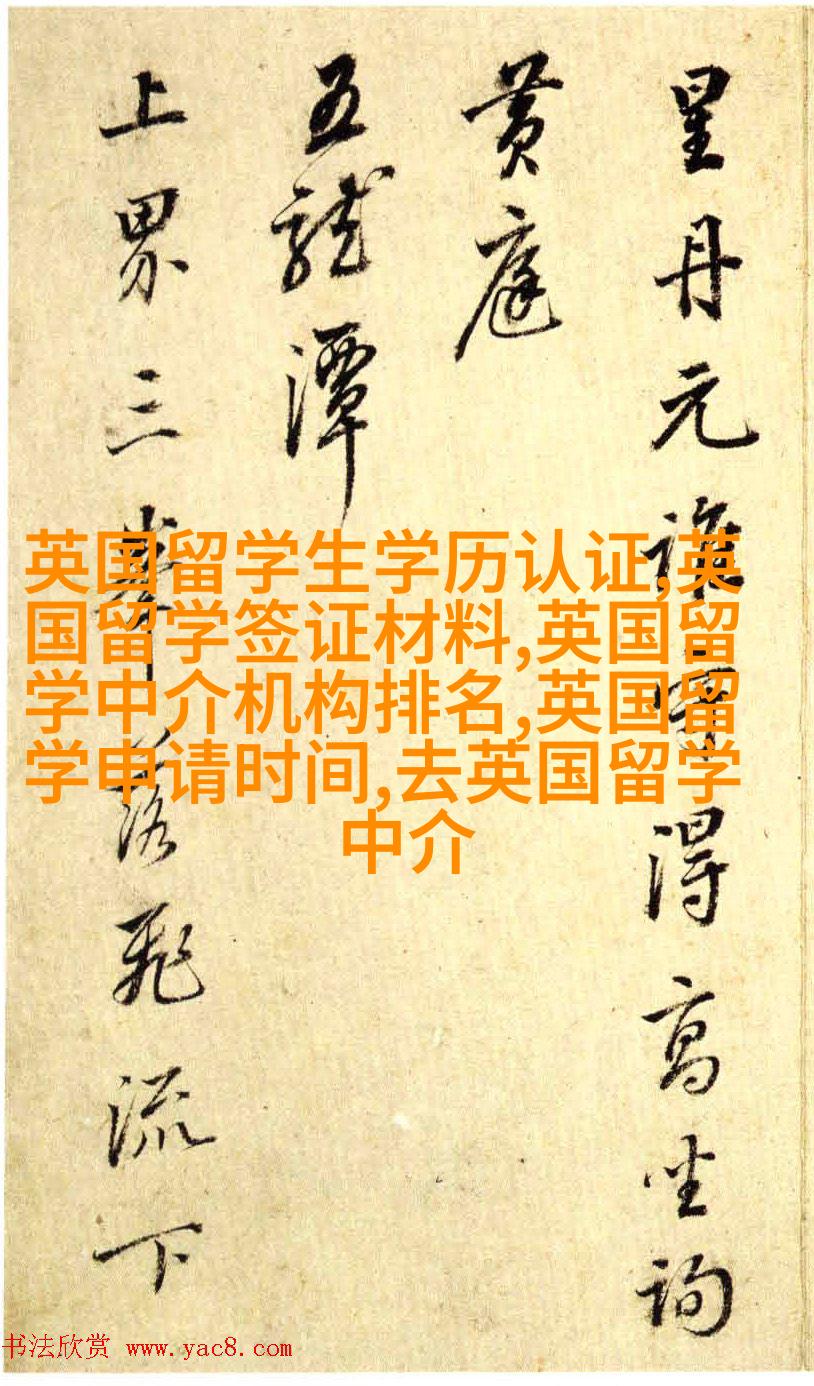 星丹元誰得高坐詢
黄庭
五龍潭
上界三峯落飛流下
英国留学生学历认证,英
国留学签证材料,英国留
学中介机构排名,英国留
学申请时间,去英国留学
中介
书法欣赏 www.yac8.com